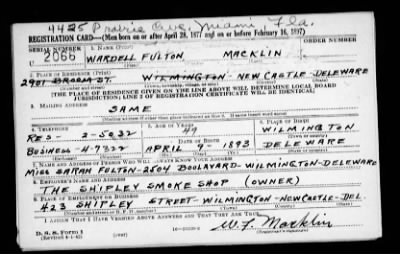 4425 Prairie Ave., Miami, Fla.
REGISTRATION CARD—(Men born on or after April 28, 1877 and on or before February 16, 1897)
SERIAL NUMBER 1. NAME (Print) ORDER NUMBER
U 2066 WARDELL FULTON MACKLIN
2. PLACE OF RESIDENCE (Print)
2901 BROOM ST. WILMINGTON - NEW CASTLE - DELEWARE
[THE PLACE OF RESIDENCE GIVEN ON THE LINE ABOVE WILL DETERMINE LOCAL BOARD
JURISDICTION; LINE 2 OF REGISTRATION CERTIFICATE WILL BE IDENTICAL]
3. MAILING ADDRESS
SAME
4. TELEPHONE 5. AGE IN YEARS 6. PLACE OF BIRTH
RES - 2-5032 49 WILMINGTON
DATE OF BIRTH
BUSINESS - 4-9322 APRIL 9 - 1893 DELEWARE
7. NAME AND ADDRESS OF PERSON WHO WILL ALWAYS KNOW YOUR ADDRESS
MISS SARAH FULTON - 2504 BOULAVARD - WILMINGTON - DELEWARE
8. EMPLOYER'S NAME AND ADDRESS
THE SHIPLEY SMOKE SHOP (OWNER)
9. PLACE OF EMPLOYMENT OR BUSINESS
423 SHIPLEY STREET - WILMINGTON - NEWCASTLE - DEL.
I AFFIRM THAT I HAVE VERIFIED ABOVE ANSWERS AND THAT THEY ARE TRUE.
D. S. S. Form 1
(Revised 4-1-42) (over) W. F. Macklin